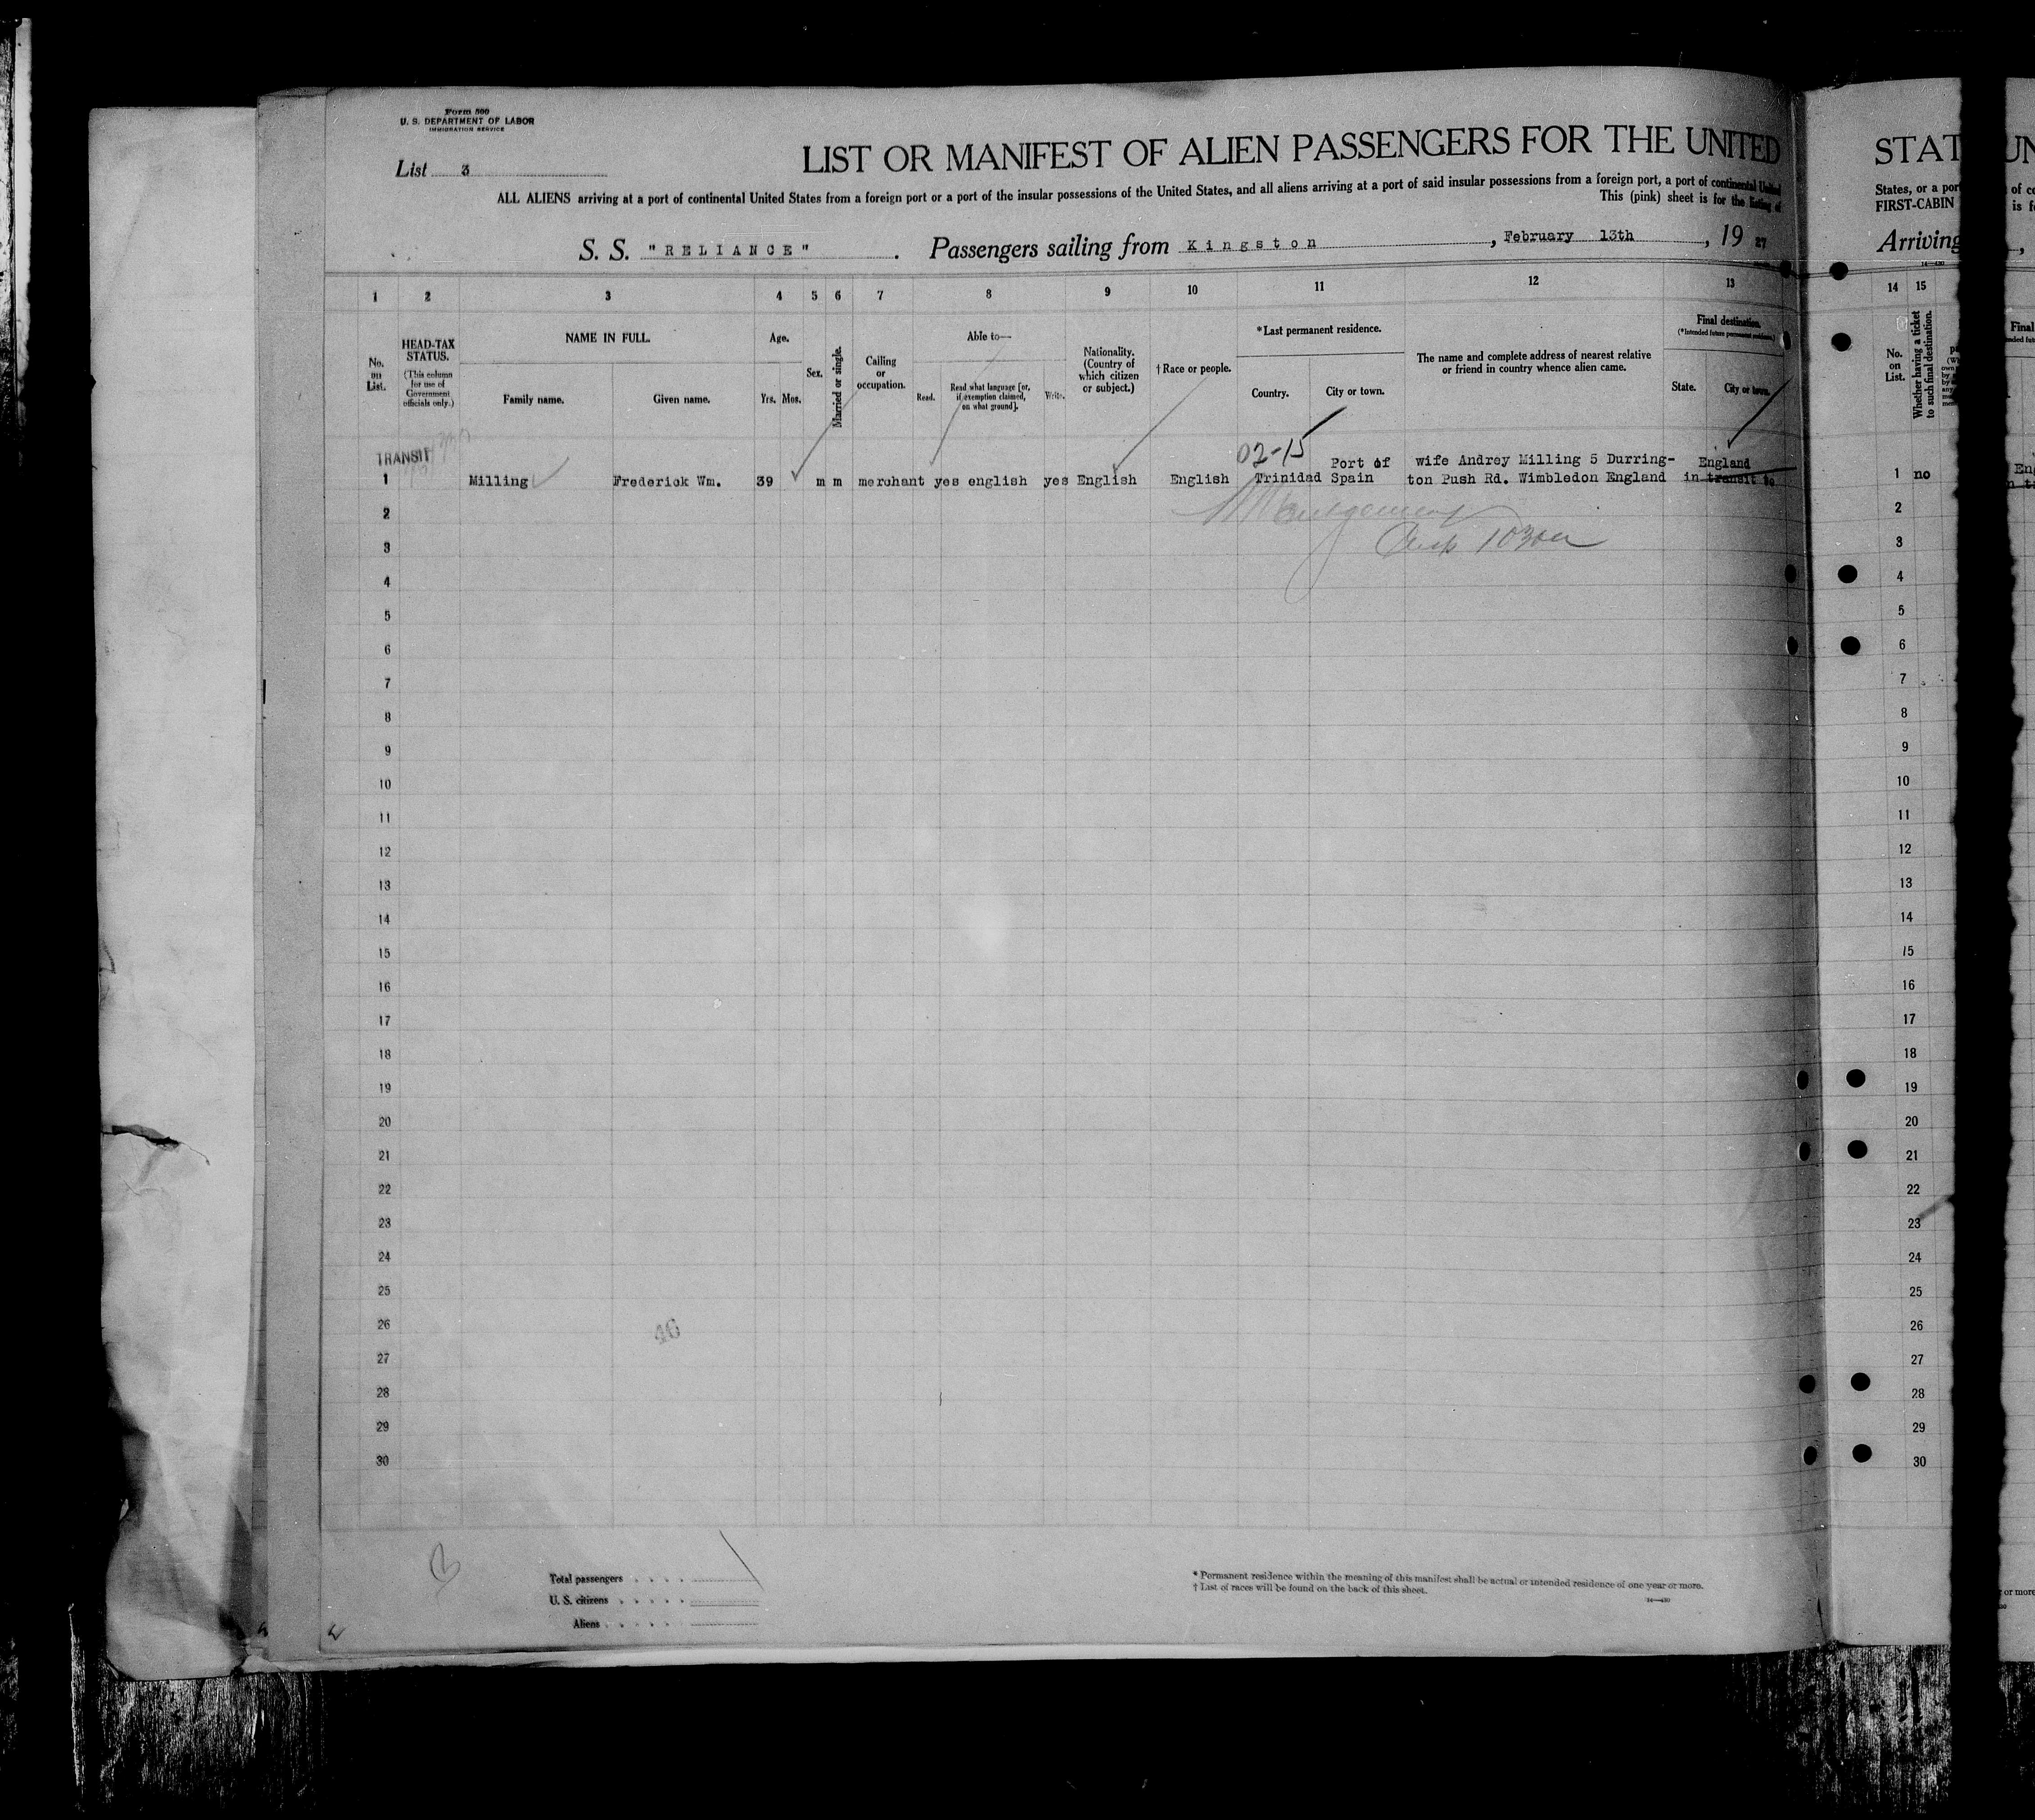 Form 500
U. S. DEPARTMENT OF LABOR
IMMIGRATION SERVICE
List 3
LIST OR MANIFEST OF ALIEN PASSENGERS FOR THE UNITED
ALL ALIENS arriving at a port of continental United States from a foreign port or a port of the insular possessions of the United States, and all aliens arriving at a port of said insular possessions from a foreign port, a port of continental United
This (pink) sheet is for the listing of
S. S. "RELIANCE". Passengers sailing from Kingston, February 13th, 19 27
1 2 3 4 5 6 7 8 9 10 11 12 13
No. on List.
HEAD-TAX STATUS.
(This column for use of Government officials only.)
NAME IN FULL.
Family name. Given name.
Age.
Yrs. Mos.
Sex.
Married or single.
Calling or occupation.
Able to—
Read. Read what language [or, if exemption claimed, on what ground]. Write.
Nationality. (Country of which citizen or subject.)
† Race or people.
*Last permanent residence.
Country. City or town.
The name and complete address of nearest relative or friend in country whence alien came.
Final destination.
(*Intended future permanent residence.)
State. City or town.
TRANSIT
02-15
Port of wife Andrey Milling 5 Durring- England
1 Milling Frederick Wm. 39 m m merchant yes english yes English English Trinidad Spain ton Push Rd. Wimbledon England in transit to
2
3
4
5
6
7
8
9
10
11
12
13
14
15
16
17
18
19
20
21
22
23
24
25
26
27
28
29
30
46
Total passengers
U. S. citizens
Aliens
* Permanent residence within the meaning of this manifest shall be actual or intended residence of one year or more.
† List of races will be found on the back of this sheet.
14—430
STAT
States, or a por
FIRST-CABIN
Arriving
14—430
14 15
No. on List.
Whether having a ticket to such final destination.
1 no
2
3
4
5
6
7
8
9
10
11
12
13
14
15
16
17
18
19
20
21
22
23
24
25
26
27
28
29
30
UN
of co
is f
Final
En
or more